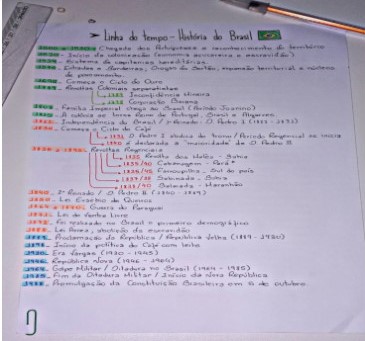 Linha do tempo - História do Brasil
Chegada dos Portugueses e reconhecimento do território
Início da colonização (economia açucareira e escravidão)
Sistema de capitanias hereditárias
Entradas e Bandeiras; Drogas do Sertão; expansão territorial e núcleos
de povoamento.
Começa o Ciclo do Ouro
Revoltas Coloniais separatistas
Inconfidência Mineira
Conjuração Baiana
Família Imperial chega ao Brasil (Período Joanino)
A colônia se torna Reino de Portugal, Brasil e Algarves
1822. Independência do Brasil / 1º Reinado: D. Pedro I (1822 - 1831)
Começa o Ciclo do Café
1831 D. Pedro I abdica do trono / Período Regencial se inicia
1840 é declarada a "maioridade" de D. Pedro II
Revoltas Regenciais
1835 Revolta dos Malês - Bahia
1835/40 Cabanagem - Pará
1835/45 Farroupilha - Sul do país
1837/38 Sabinada - Bahia
1838/41 Balaiada - Maranhão
1840. 2º Reinado / D. Pedro II (1840 - 1889)
1850. Lei Eusébio de Queiroz
Guerra do Paraguai
1871. Lei do Ventre Livre
1872. Foi realizado no Brasil o primeiro demográfico
1888. Lei Áurea; abolição da escravidão
1889. Proclamação da República / República Velha (1889 - 1930)
1898. Início da política do Café com Leite
1930. Era Vargas (1930 - 1945)
1946. República Nova (1946 - 1964)
1964. Golpe Militar / Ditadura no Brasil (1964 - 1985)
1985. Fim da Ditadura Militar / Início da Nova República
1988. Promulgação da Constituição Brasileira em 5 de outubro